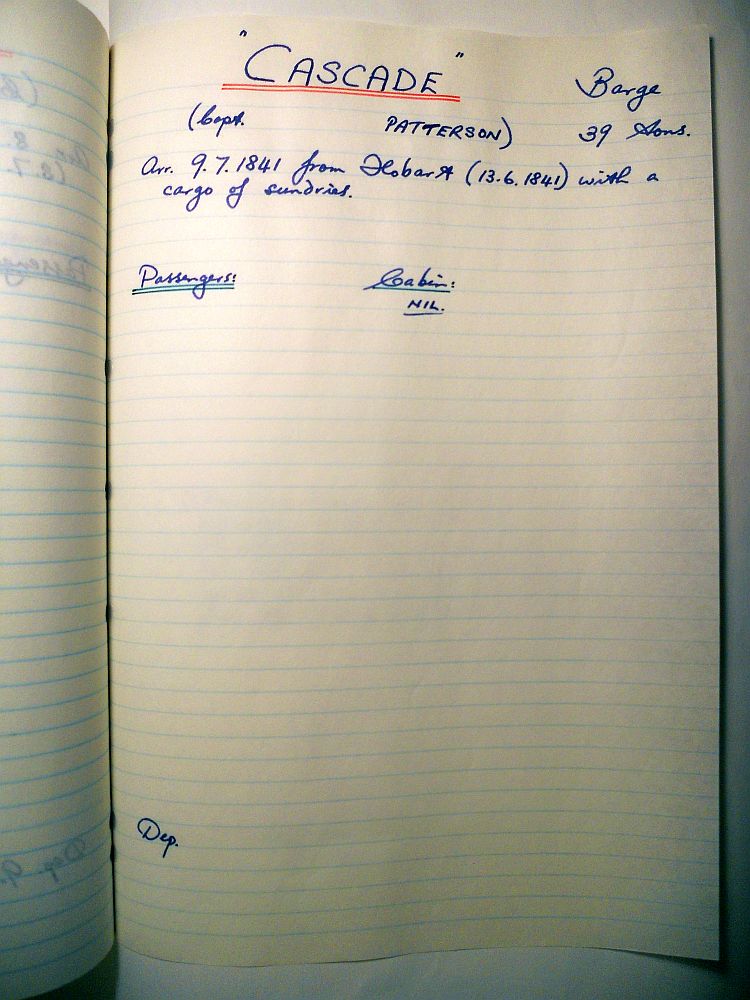 "CASCADE" Barge
(Capt. PATTERSON) 39 tons.
Arr. 9.7.1841 from Hobart (13.6.1841) with a
cargo of sundries.
Passengers: Cabin:
NIL.
Dep.